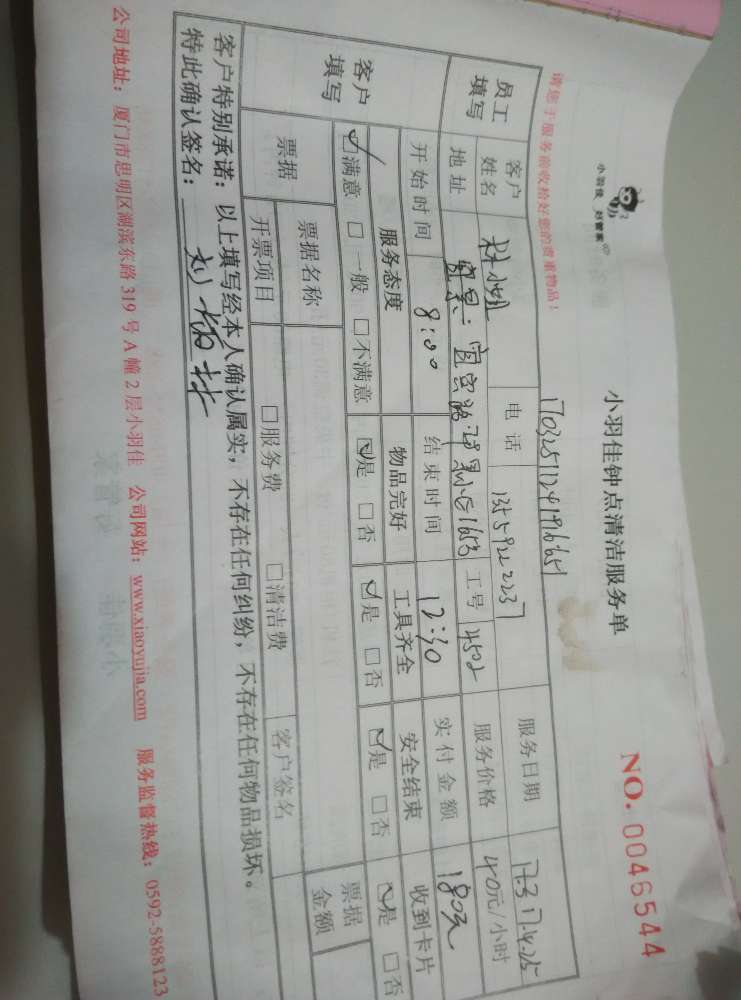 小羽佳 好管家
小羽佳钟点清洁服务单
NO. 0046544
请您于服务前收拾好您的贵重物品！
员工填写
客户姓名
电话
服务日期
地址
工号 4502
服务价格 40元/小时
开始时间 8:00 结束时间 12:30 实付金额 180元
客户填写
服务态度 物品完好 工具齐全 安全结束 收到卡片
☑满意 □一般 □不满意 ☑是 □否 ☑是 □否 ☑是 □否 ☑是 □否
票据 票据名称 票据金额
开票项目 □服务费 □清洁费 客户签名
客户特别承诺：以上填写经本人确认属实，不存在任何纠纷，不存在任何物品损坏。
特此确认签名：
公司地址：厦门市思明区湖滨东路319号A幢2层小羽佳 公司网站：www.xiaoyujia.com 服务监督热线：0592-5888123